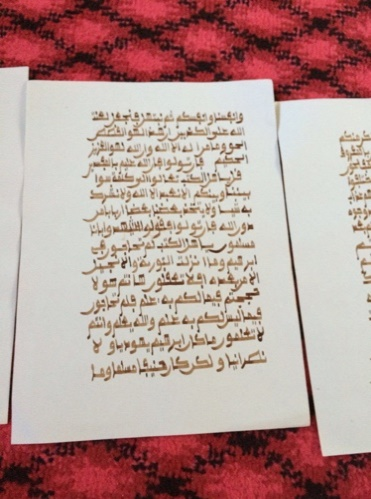 وانفسنا وانفسكم ثم نبتهل فنجعل لعنت
الله على الكذبين ان هذا لهو القصص
الحق وما من اله الا الله وان الله لهو العزيز
الحكيم فان تولوا فان الله عليم بالمفسدين
قل ياهل الكتب تعالوا الى كلمة سوا
بيننا وبينكم الا نعبد الا الله ولا نشرك
به شيا ولا يتخذ بعضنا بعضا اربابا من
دون الله فان تولوا فقولوا اشهدوا بانا
مسلمون ياهل الكتب لم تحاجون في
ابرهيم وما انزلت التورية والانجيل
الا من بعده افلا تعقلون هانتم هولا
حججتم فيما لكم به علم فلم تحاجون
فيما ليس لكم به علم والله يعلم وانتم
لا تعلمون ما كان ابرهيم يهوديا ولا
نصرانيا ولكن كان حنيفا مسلما وما